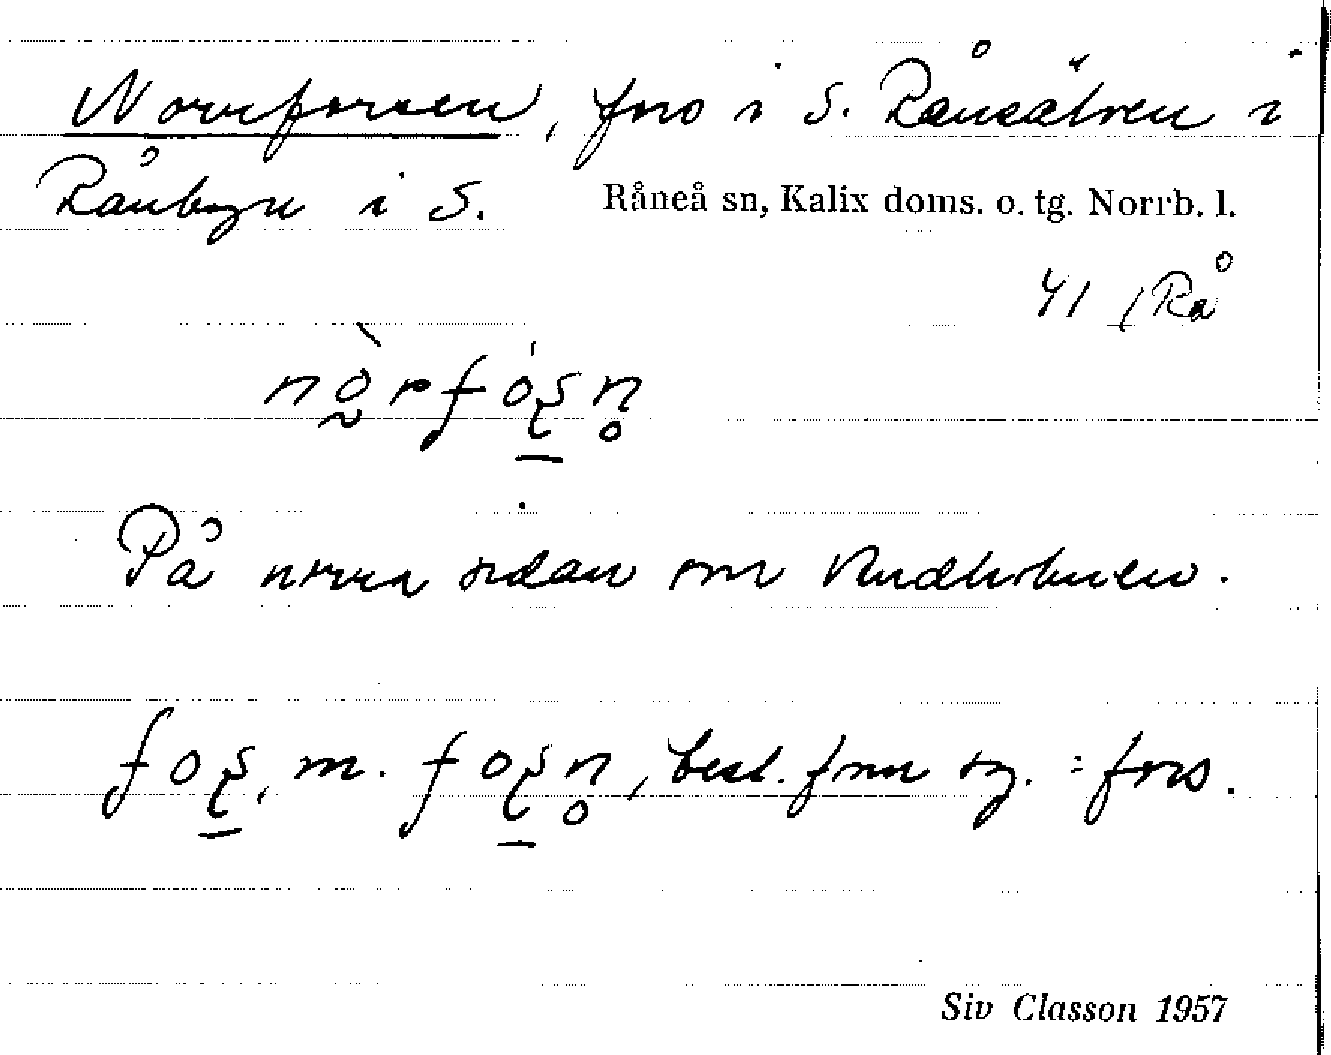 Norrforsen, fors i S. Råneälven i
Rånbyn i S. Råneå sn, Kalix doms. o. tg. Norrb. l.
41 /Rå
nò̰rfóʂn̥
På norra sidan om
foʂ, m. foʂn̥, best. form sg. = fors.
Siv Classon 1957